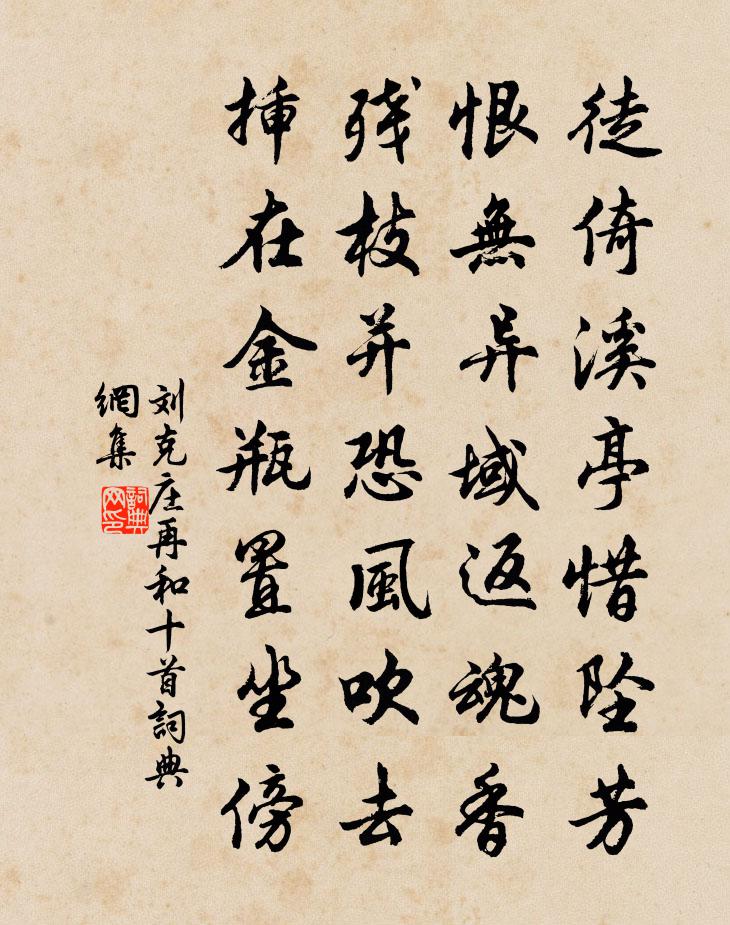 徒倚溪亭惜坠芳
恨無异域返魂香
残枝并恐風吹去
挿在金瓶置坐傍
刘克庄再和十首詞典
網集
詞典
网印